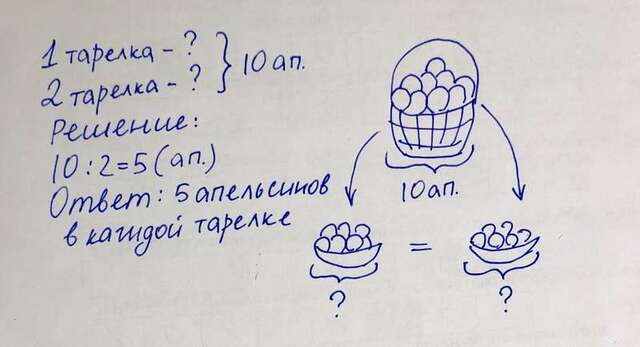 1 тарелка - ?
2 тарелка - ?
} 10 ап.
Решение:
10 : 2 = 5 (ап.)
Ответ: 5 апельсинов
в каждой тарелке
10 ап.
=
?
?